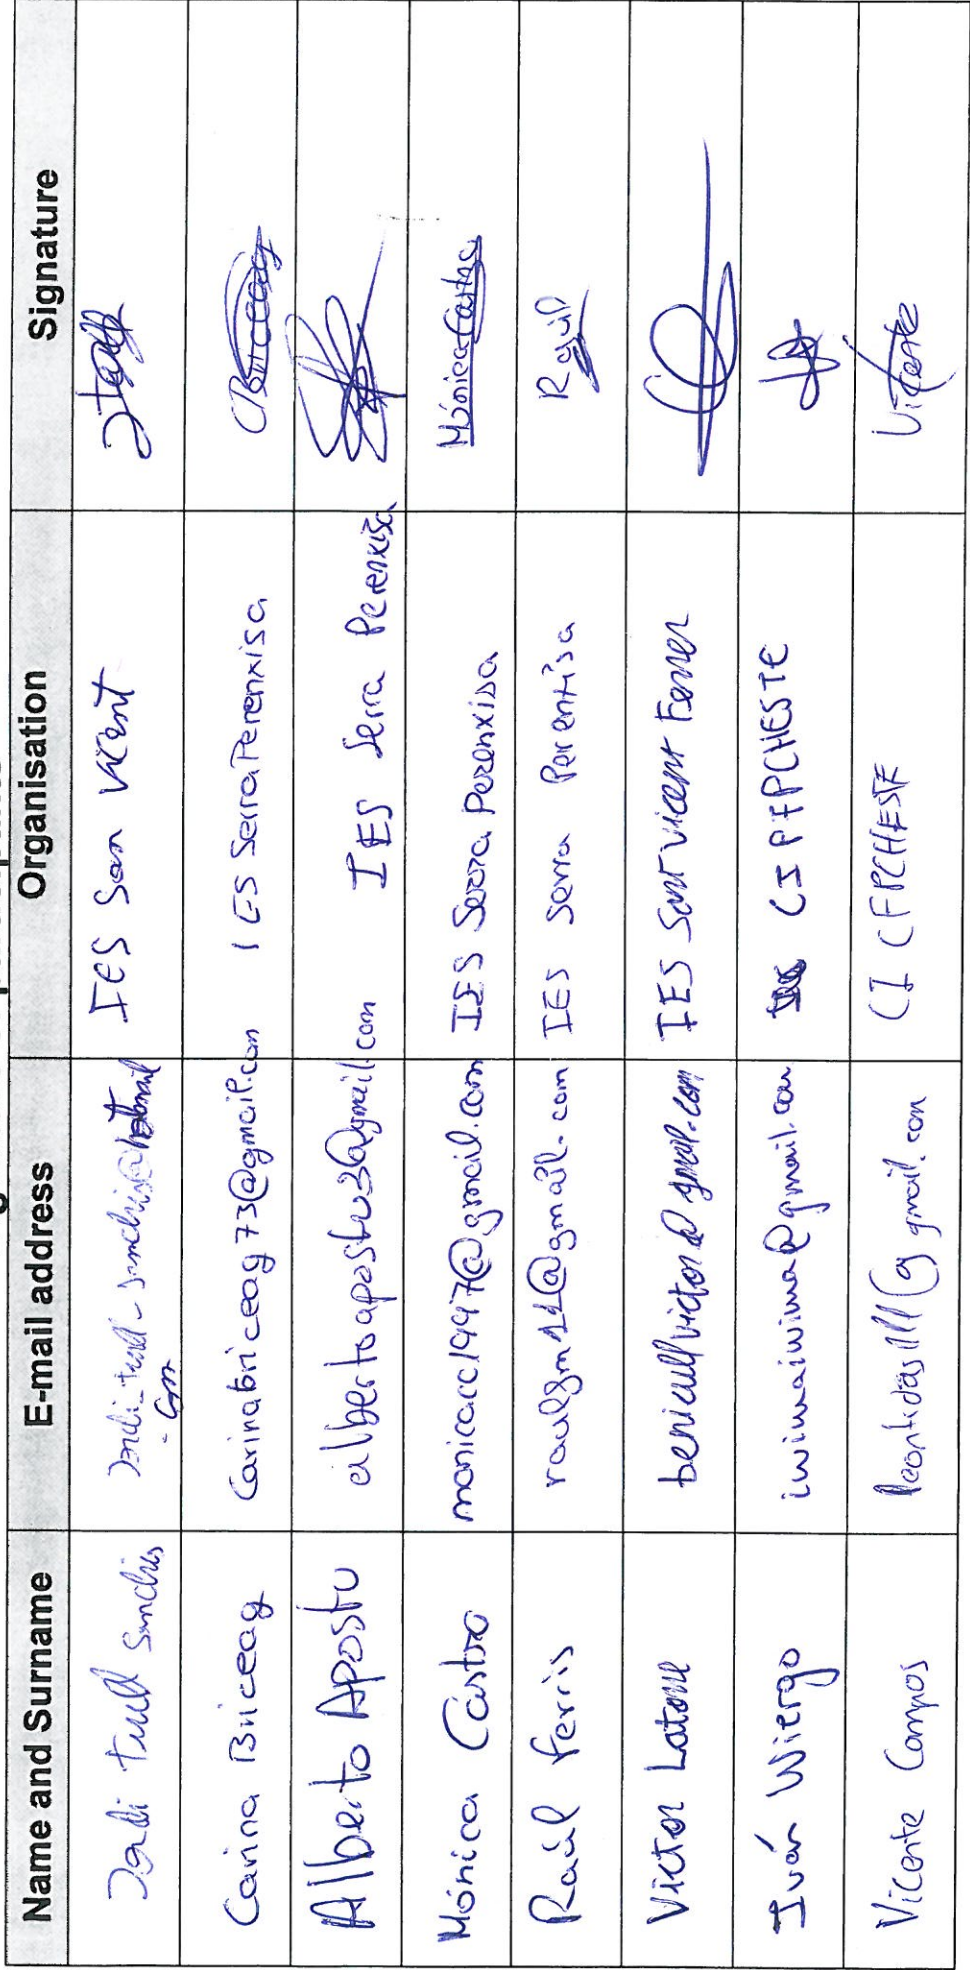 Name and Surname E-mail address Organisation Signature
Sanchis IES San Vicent
Carina Briceag Carinabriceag73@gmail.com IES Serra Perenxisa
Alberto Apostu albertoapostu3@gmail.com IES Serra Perenxisa
Mónica Castro monicacc1997@gmail.com IES Serra Perenxisa Mónica Castro
Raúl Ferris raulgm11@gmail.com IES Serra Perenxisa Raúl
Victor Latorre benicullvictor@gmail.com IES Sant Vicent Ferrer
Iván Wiergo iwimaiwima@gmail.com CIPFPCHESTE
Vicente Campos CICFPCHESTE Vicente